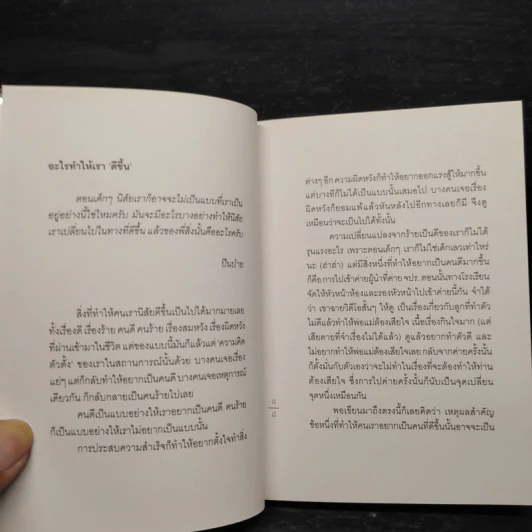 อะไรทำให้เรา 'ดีขึ้น'
ตอนเด็กๆ นิสัยเราก็อาจจะไม่เป็นแบบที่เราเป็น
อยู่อย่างนี้ใช่ไหมครับ มันจะมีอะไรบางอย่างทำให้นิสัย
เราเปลี่ยนไปในทางที่ดีขึ้น แล้วของพี่สิ่งนั้นคืออะไรครับ
ปืนปาย
สิ่งที่ทำให้คนเรานิสัยดีขึ้นเป็นไปได้มากมายเลย
ทั้งเรื่องดี เรื่องร้าย คนดี คนร้าย เรื่องสมหวัง เรื่องผิดหวัง
ที่ผ่านเข้ามาในชีวิต แต่ของแบบนี้มันก็แล้วแต่ 'ความคิด
ตั้งต้น' ของเราในสถานการณ์นั้นด้วย บางคนเจอเรื่อง
แย่ๆ แต่ก็กลับทำให้อยากเป็นคนดี บางคนเจอเหตุการณ์
เดียวกัน ก็กลับกลายเป็นคนร้ายไปเลย
คนดีเป็นแบบอย่างให้เราอยากเป็นคนดี คนร้าย
ก็เป็นแบบอย่างให้เราไม่อยากเป็นแบบนั้น
การประสบความสำเร็จก็ทำให้อยากตั้งใจทำสิ่ง
ต่างๆ อีก ความผิดหวังก็ทำให้อยากออกแรงสู้ให้มากขึ้น
แต่บางทีก็ไม่ได้เป็นแบบนั้นเสมอไป บางคนเจอเรื่อง
ผิดหวังก็ยอมแพ้แล้วหันหลังไปอีกทางเลยก็มี จึงดู
เหมือนว่าจะเป็นไปได้ทั้งนั้น
ความเปลี่ยนแปลงจากร้ายเป็นดีของเราก็ไม่ได้
รุนแรงอะไร เพราะตอนเด็กๆ เราก็ไม่ใช่เด็กเลวเท่าไหร่
นะ (ฮ่าฮ่า) แต่มีสิ่งหนึ่งที่ทำให้อยากเป็นคนดีมากขึ้น
ก็คือ การไปเข้าค่ายผู้นำที่ค่าย จปร. ตอนนั้นทางโรงเรียน
จัดให้หัวหน้าห้องและรองหัวหน้าไปเข้าค่ายนี้กัน จำได้
ว่า เขาฉายวิดีโอสั้นๆ ให้ดู เป็นเรื่องเกี่ยวกับลูกที่ทำตัว
ไม่ดีแล้วทำให้พ่อแม่ต้องเสียใจ เนื้อเรื่องกินใจมาก (แต่
เสียดายที่จำเรื่องไม่ได้แล้ว) ดูแล้วอยากทำตัวดี และ
ไม่อยากทำให้พ่อแม่ต้องเสียใจเลย กลับจากค่ายครั้งนั้น
ก็ตั้งมั่นกับตัวเองว่าจะไม่ทำในเรื่องที่จะต้องทำให้ท่าน
ต้องเสียใจ ซึ่งการไปค่ายครั้งนั้นก็นับเป็นจุดเปลี่ยน
จุดหนึ่งเหมือนกัน
พอเขียนมาถึงตรงนี้ก็เลยคิดว่า เหตุผลสำคัญ
ข้อหนึ่งที่ทำให้คนเราอยากเป็นคนที่ดีขึ้นนั้นอาจจะเป็น